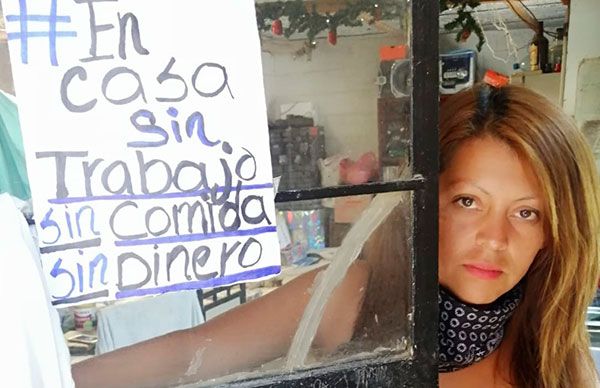 #En
casa
sin
Trabajo
sin Comida
sin Dinero